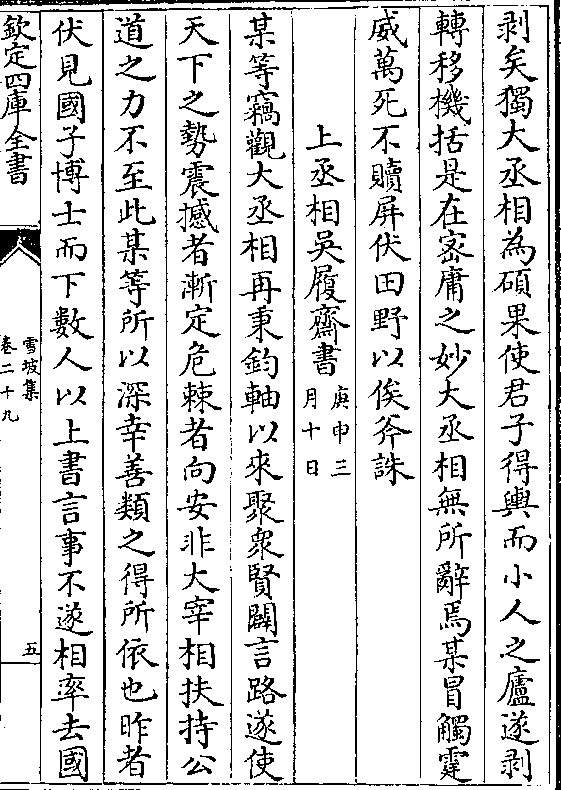 剥矣獨大丞相為碩果使君子得輿而小人之廬遂剥
轉移機括是在宻庸之妙大丞相無所辭焉某冒觸霆
威萬死不贖屏伏田野以俟斧誅
上丞相吳履齋書庚申三月十日
某等竊觀大丞相再秉鈞軸以來聚衆賢闢言路遂使
天下之勢震撼者漸定危棘者向安非大宰相扶持公
道之力不至此某等所以深幸善類之得所依也昨者
伏見國子博士而下數人以上書言事不遂相率去國
欽定四庫全書
雪坡集
卷二十九
五